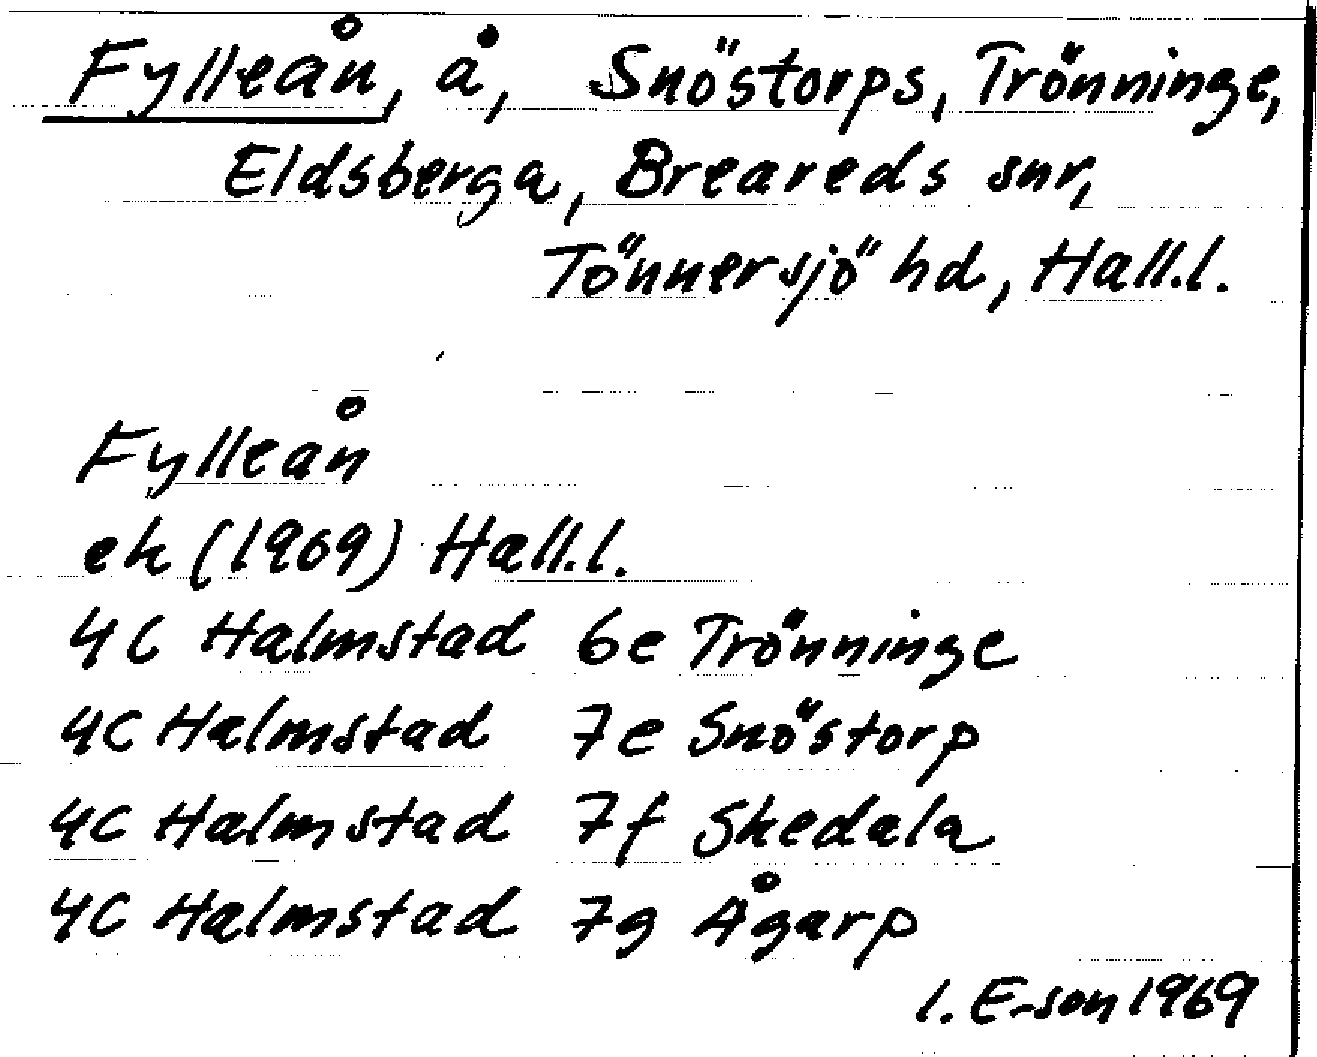 Fylleån, å, Snöstorps, Trönninge,
Eldsberga, Breareds snr,
Tönnersjö hd, Hall.l.
Fylleån
ek (1969) Hall.l.
4C Halmstad 6e Trönninge
4C Halmstad 7e Snöstorp
4C Halmstad 7f Skedala
4C Halmstad 7g Ågarp
I. E-son 1969